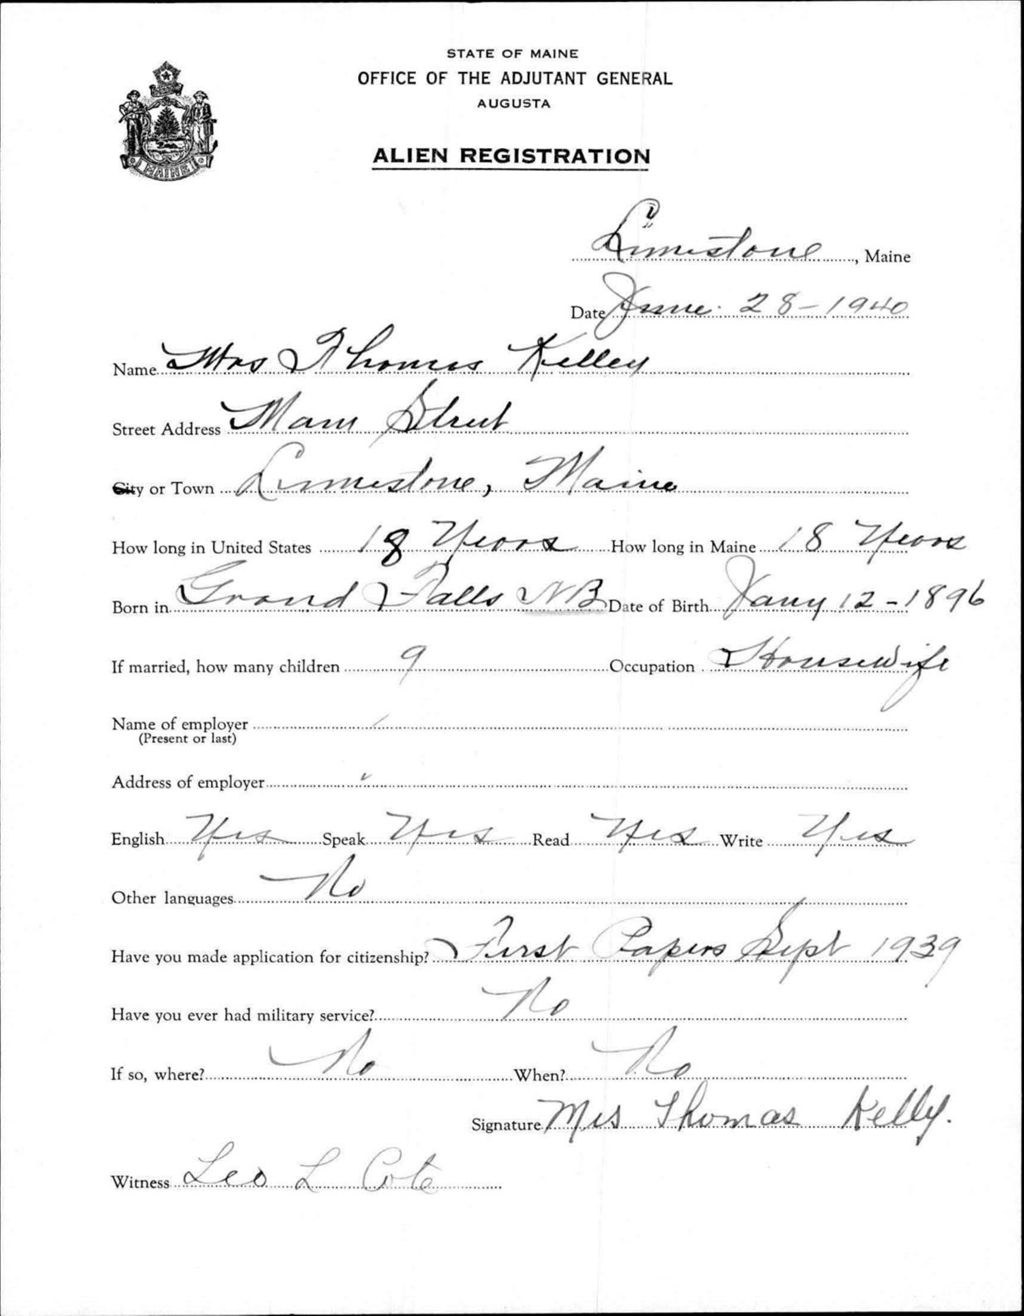 STATE OF MAINE
OFFICE OF THE ADJUTANT GENERAL
AUGUSTA
MAINE
ALIEN REGISTRATION
Limestone, Maine
Date June 28-1940
Name Mrs Thomas Kelley
Street Address Main Street
City or Town Limestone, Maine
How long in United States 18 Years How long in Maine 18 Years
Born in Grand Falls NB Date of Birth Jany 12-1896
If married, how many children 9 Occupation Housewife
Name of employer
(Present or last)
Address of employer
English Yes Speak Yes Read Yes Write Yes
Other languages No
Have you made application for citizenship? First Papers Sept 1939
Have you ever had military service? No
If so, where? No When? No
Signature Mrs Thomas Kelly.
Witness Leo L Cote